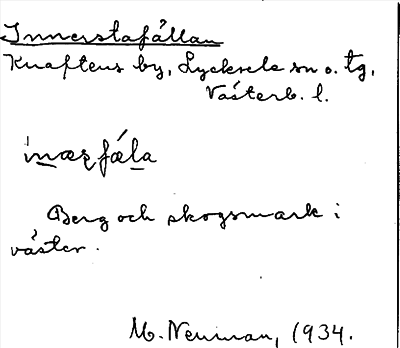 Innerstafállan
Knaftens by, Lycksele sn o. tg,
Västerb. l.
inærfǽla
Berg och skogsmark i
väster.
M. Neuman, 1934.